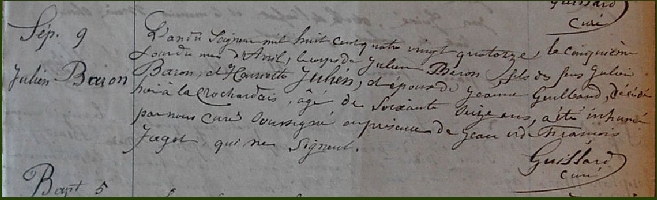 Guillard
Curé
Sép. 9
Julien Baron
L'an du Seigneur mil huit cent quatre vingt quatorze, le cinquième
jour du mois d'Avril, le corps de Julien Baron fils de feus Julien
Baron, et Henriette Julien, et époux de Jeanne Guilbaud, décédé
hier à la Crochardais, âgé de soixante ans, a été inhumé
par nous curé soussigné en présence de Jean et de François
Jaget qui ne signent.
Guillard
Curé
Bapt 5